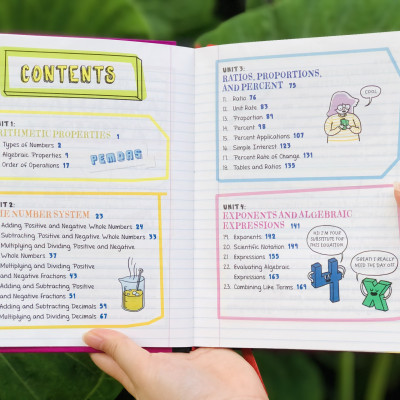 CONTENTS
UNIT 1:
ARITHMETIC PROPERTIES 1
Types of Numbers 2
Algebraic Properties 9
Order of Operations 17
PEMDAS
UNIT 2:
THE NUMBER SYSTEM 23
Adding Positive and Negative Whole Numbers 24
Subtracting Positive and Negative Whole Numbers 33
Multiplying and Dividing Positive and Negative
Whole Numbers 37
Multiplying and Dividing Positive
and Negative Fractions 43
Adding and Subtracting Positive
and Negative Fractions 51
Adding and Subtracting Decimals 59
Multiplying and Dividing Decimals 67
UNIT 3:
RATIOS, PROPORTIONS,
AND PERCENT 75
11. Ratio 76
12. Unit Rate 83
13. Proportion 89
14. Percent 98
15. Percent Applications 107
16. Simple Interest 123
17. Percent Rate of Change 131
18. Tables and Ratios 135
COOL
UNIT 4:
EXPONENTS AND ALGEBRAIC
EXPRESSIONS 141
19. Exponents 142
20. Scientific Notation 149
21. Expressions 155
22. Evaluating Algebraic
Expressions 163
23. Combining Like Terms 169
HI! I'M YOUR
SUBSTITUTE FOR
THIS EQUATION.
4
GREAT! I REALLY
NEED THE DAY OFF.
X